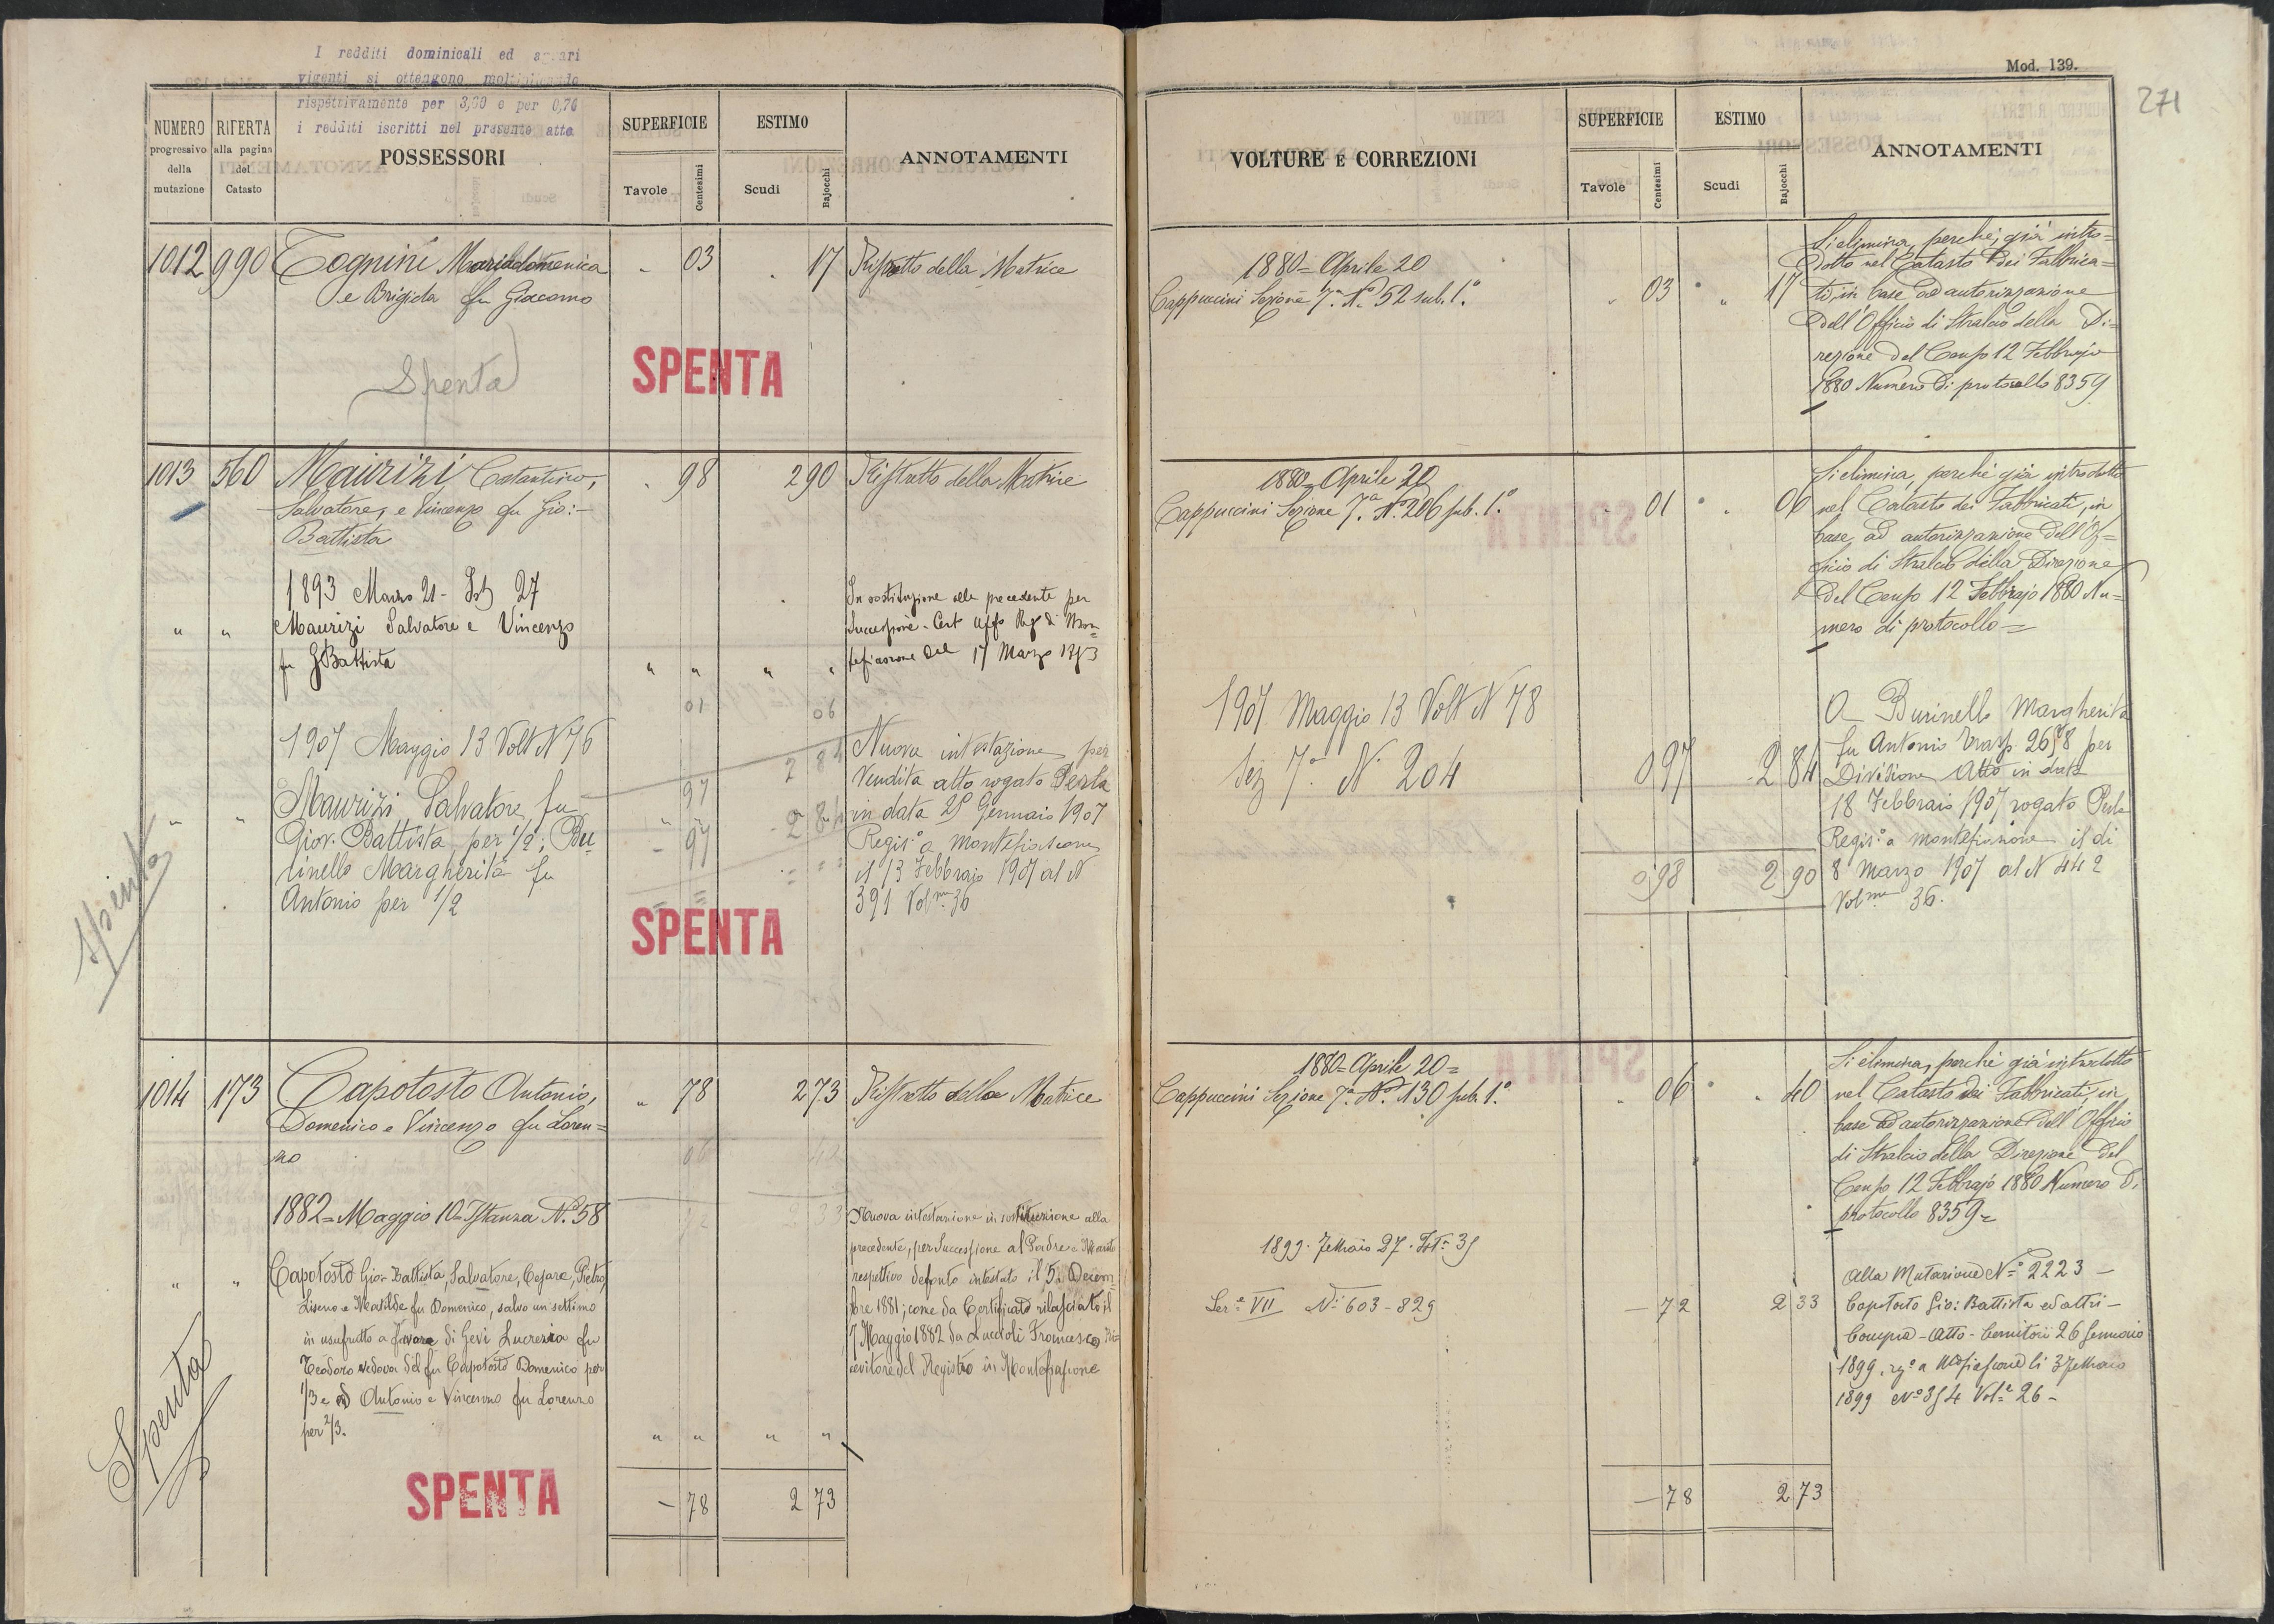 I redditi dominicali ed agrari
vigenti si ottengono moltiplicando
rispettivamente per 3,60 e per 0,76
i redditi iscritti nel presente atto
NUMERO progressivo della mutazione
RIFERTA alla pagina del Catasto
POSSESSORI
SUPERFICIE
Tavole
Centesimi
ESTIMO
Scudi
Bajocchi
ANNOTAMENTI
1012 990 Tognini Mariadomenica „ 03 „ 17 Ristretto della Matrice
e Brigida fu Giacomo
Spenta
SPENTA
1013 560 Maurizi Costantino, „ 98 2 90 Ristretto della Matrice
Salvatore, e Vincenzo fu Gio:
Battista
1893 Marzo 21 - Ist 27
„ „ Maurizi Salvatore e Vincenzo
fu GBattista „ „ „ „
In sostituzione alla precedente per
Successione - Cert Uffo Reg di Mon=
tefiascone del 17 Marzo 1893
01 06
1907 Maggio 13 Volt N 76
2 84
97
„ „ Maurizi Salvatore fu
Giov. Battista per 1/2; Bu
rinello Margherita fu
Antonio per 1/2
- 97 2 84
Nuova intestazione per
Vendita atto rogato Perla
in data 25 Gennaio 1907
Regis.o a Montefiascone
il 13 Febbraio 1907 al N
391 Vol.me 36
Spenta
SPENTA
1014 173 Capotosto Antonio, „ 78 2 73 Ristretto della Matrice
Domenico e Vincenzo fu Loren=
zo
06
1882 = Maggio 10 = Istanza N.o 58
72 2 33
„ „ Capotosto Gio: Battista, Salvatore, Cesare, Pietro,
Liseno e Matilde fu Domenico, salvo un settimo
in usufrutto a favore di Gevi Lucrezia fu
Teodoro vedova del fu Capotosto Domenico per
1/3 e ad Antonio e Vincenzo fu Lorenzo
per 2/3.
„ „ „ „
Nuova intestazione in sostituzione alla
precedente, per Successione al Padre e Marito
respettivo defonto intestato il 5. Decem=
bre 1881; come da Certificato rilasciato il
7 Maggio 1882 da Luccioli Francesco Ri=
cevitore del Registro in Montefiascone
Spenta
SPENTA
- 78 2 73
Mod. 139.
271
VOLTURE E CORREZIONI
SUPERFICIE
Tavole
Centesimi
ESTIMO
Scudi
Bajocchi
ANNOTAMENTI
1880 = Aprile 20
Cappuccini Sezione 7.a N.o 52 sub. 1.o „ 03 „ 17
Si elimina, perchè, già intro=
dotto nel Catasto dei Fabbrica=
ti, in base ad autorizzazione
dell'Officio di Stralcio della Di=
rezione del Censo 12 Febbrajo
1880 Numero di protocollo 8359
1880 = Aprile 20
Cappuccini Sezione 7.a N.o 206 sub. 1.o „ 01 „ 06
Si elimina, perchè già introdotto
nel Catasto dei Fabbricati, in
base, ad autorizzazione dell'Of=
ficio di Stralcio della Direzione
del Censo 12 Febbrajo 1880 Nu=
mero di protocollo =
1907 Maggio 13 Volt N 78
Sez 7.a N. 204 0 97 2 84
0 98 2 90
A Burinello Margherita
fu Antonio Trasp. 2658 per
Divisione Atto in data
18 Febbraio 1907 rogato Perla
Regis.o a Montefiascone il dì
8 Marzo 1907 al N 442
Vol.me 36.
1880 = Aprile 20 =
Cappuccini Sezione 7.a N.o 130 sub. 1.o „ 06 „ 40
Si elimina, perchè già introdotto
nel Catasto dei Fabbricati, in
base ad autorizzazione dell'Officio
di Stralcio della Direzione del
Censo 12 Febbrajo 1880 Numero di
protocollo 8359 =
1899. Febbraio 27. Ist.a 35
Sez.e VII N.i 603 - 829 - 72 2 33
Alla Mutazione N.o 2223 -
Capotosto Gio: Battista ed altri -
Compra - Atto - Cernitori 26 Gennaio
1899. reg.o a M.fiascone li 3 Febbraio
1899 N.o 354 Vol.e 26 -
- 78 2 73